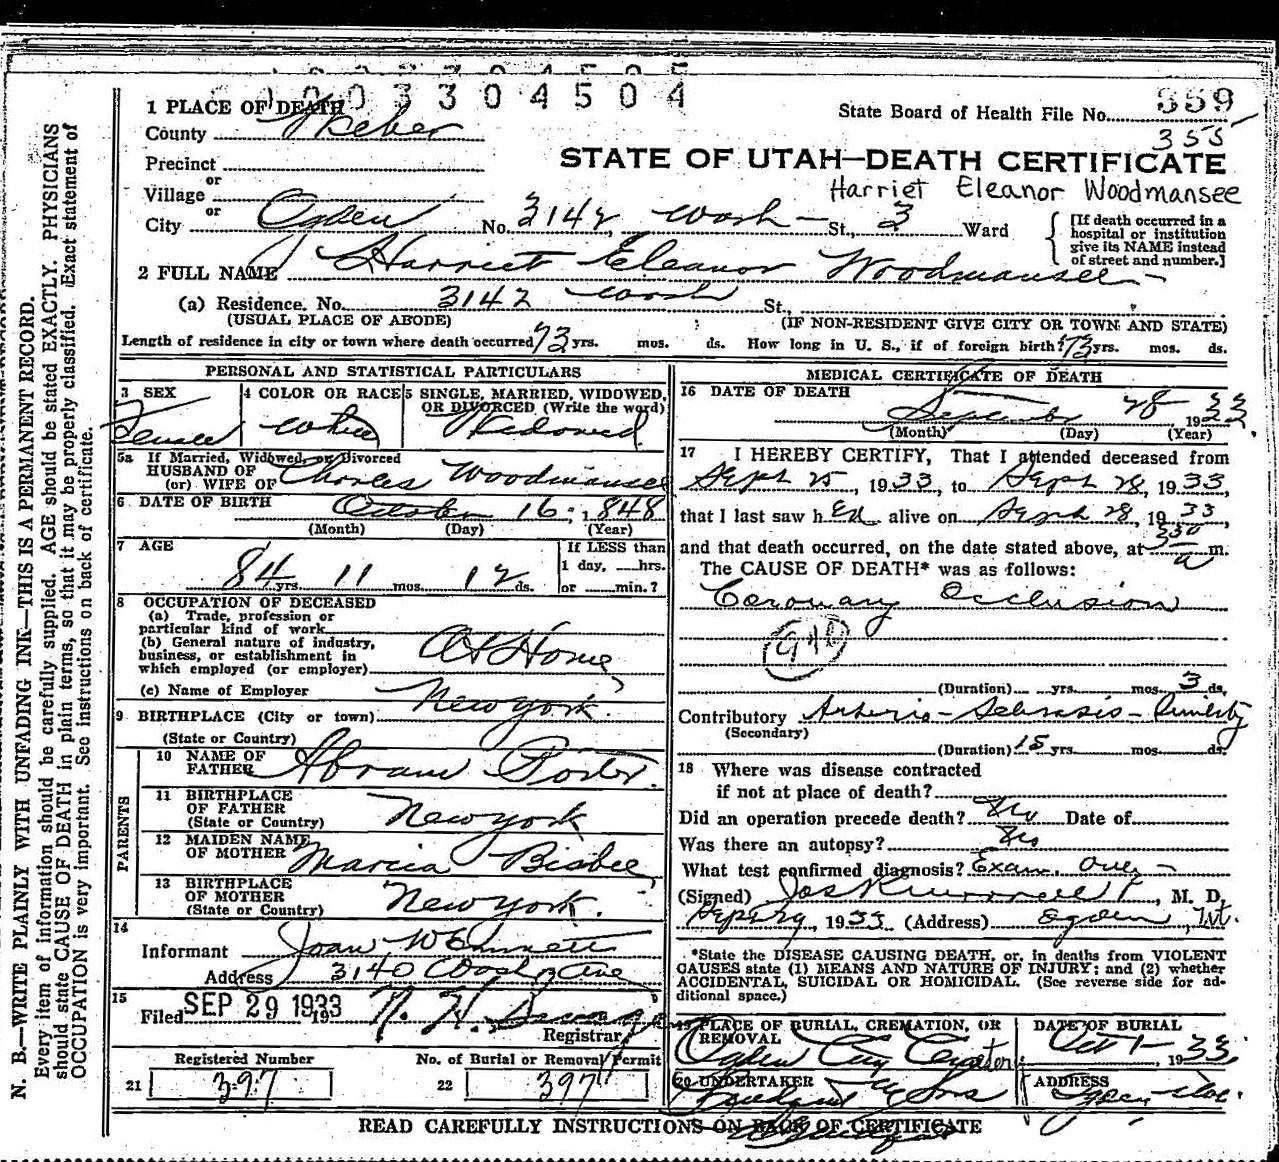 1 PLACE OF DEATH
State Board of Health File No. 359
County Weber
355
Precinct
or
STATE OF UTAH—DEATH CERTIFICATE
Village
Harriet Eleanor Woodmansee
or
City Ogden No. 3142 Wash St., 3 Ward
[If death occurred in a hospital or institution give its NAME instead of street and number.]
2 FULL NAME Harriet Eleanor Woodmansee
(a) Residence. No. 3142 Wash St.,
(USUAL PLACE OF ABODE) (IF NON-RESIDENT GIVE CITY OR TOWN AND STATE)
Length of residence in city or town where death occurred 73 yrs. mos. ds. How long in U. S., if of foreign birth? 73 yrs. mos. ds.
PERSONAL AND STATISTICAL PARTICULARS
3 SEX 4 COLOR OR RACE 5 SINGLE, MARRIED, WIDOWED,
OR DIVORCED (Write the word)
Female White Widowed
5a If Married, Widowed, or Divorced
HUSBAND OF
(or) WIFE OF Charles Woodmansee
6 DATE OF BIRTH October 16, 1848
(Month) (Day) (Year)
7 AGE 84 yrs. 11 mos. 12 ds.
If LESS than
1 day, hrs.
or min.?
8 OCCUPATION OF DECEASED
(a) Trade, profession or
particular kind of work
(b) General nature of industry,
business, or establishment in
which employed (or employer) At Home
(c) Name of Employer
9 BIRTHPLACE (City or town) New York
(State or Country)
PARENTS
10 NAME OF
FATHER Abram Porter
11 BIRTHPLACE
OF FATHER
(State or Country) New York
12 MAIDEN NAME
OF MOTHER Marcia Bisbee
13 BIRTHPLACE
OF MOTHER
(State or Country) New York.
14
Informant
Address 3140 Wash Ave
15
Filed SEP 29 1933 193
Registrar
Registered Number No. of Burial or Removal Permit
21 397 22 397
MEDICAL CERTIFICATE OF DEATH
16 DATE OF DEATH
September 28 1933
(Month) (Day) (Year)
17 I HEREBY CERTIFY, That I attended deceased from
Sept 25, 1933, to Sept 28, 1933,
that I last saw her alive on Sept 28, 1933
and that death occurred, on the date stated above, at 350 a m.
The CAUSE OF DEATH* was as follows:
Coronary Occlusion
94b
(Duration) yrs. mos. 3 ds,
Contributory Arterio-Sclrosis-
(Secondary)
(Duration) 15 yrs. mos. ds.
18 Where was disease contracted
if not at place of death?
Did an operation precede death? No Date of
Was there an autopsy? No
What test confirmed diagnosis? Exam.
(Signed) M. D.
Sep 29, 1933 (Address) Ogden, Ut.
*State the DISEASE CAUSING DEATH, or, in deaths from VIOLENT
CAUSES state (1) MEANS AND NATURE OF INJURY; and (2) whether
ACCIDENTAL, SUICIDAL OR HOMICIDAL. (See reverse side for ad-
ditional space.)
19 PLACE OF BURIAL, CREMATION, OR
REMOVAL
DATE OF BURIAL
Ogden City Oct 1 1933
20 UNDERTAKER ADDRESS
& Sons Ogden
READ CAREFULLY INSTRUCTIONS ON BACK OF CERTIFICATE
N. B.—WRITE PLAINLY WITH UNFADING INK—THIS IS A PERMANENT RECORD.
Every item of information should be carefully supplied. AGE should be stated EXACTLY. PHYSICIANS
should state CAUSE OF DEATH in plain terms, so that it may be properly classified. Exact statement of
OCCUPATION is very important. See instructions on back of certificate.